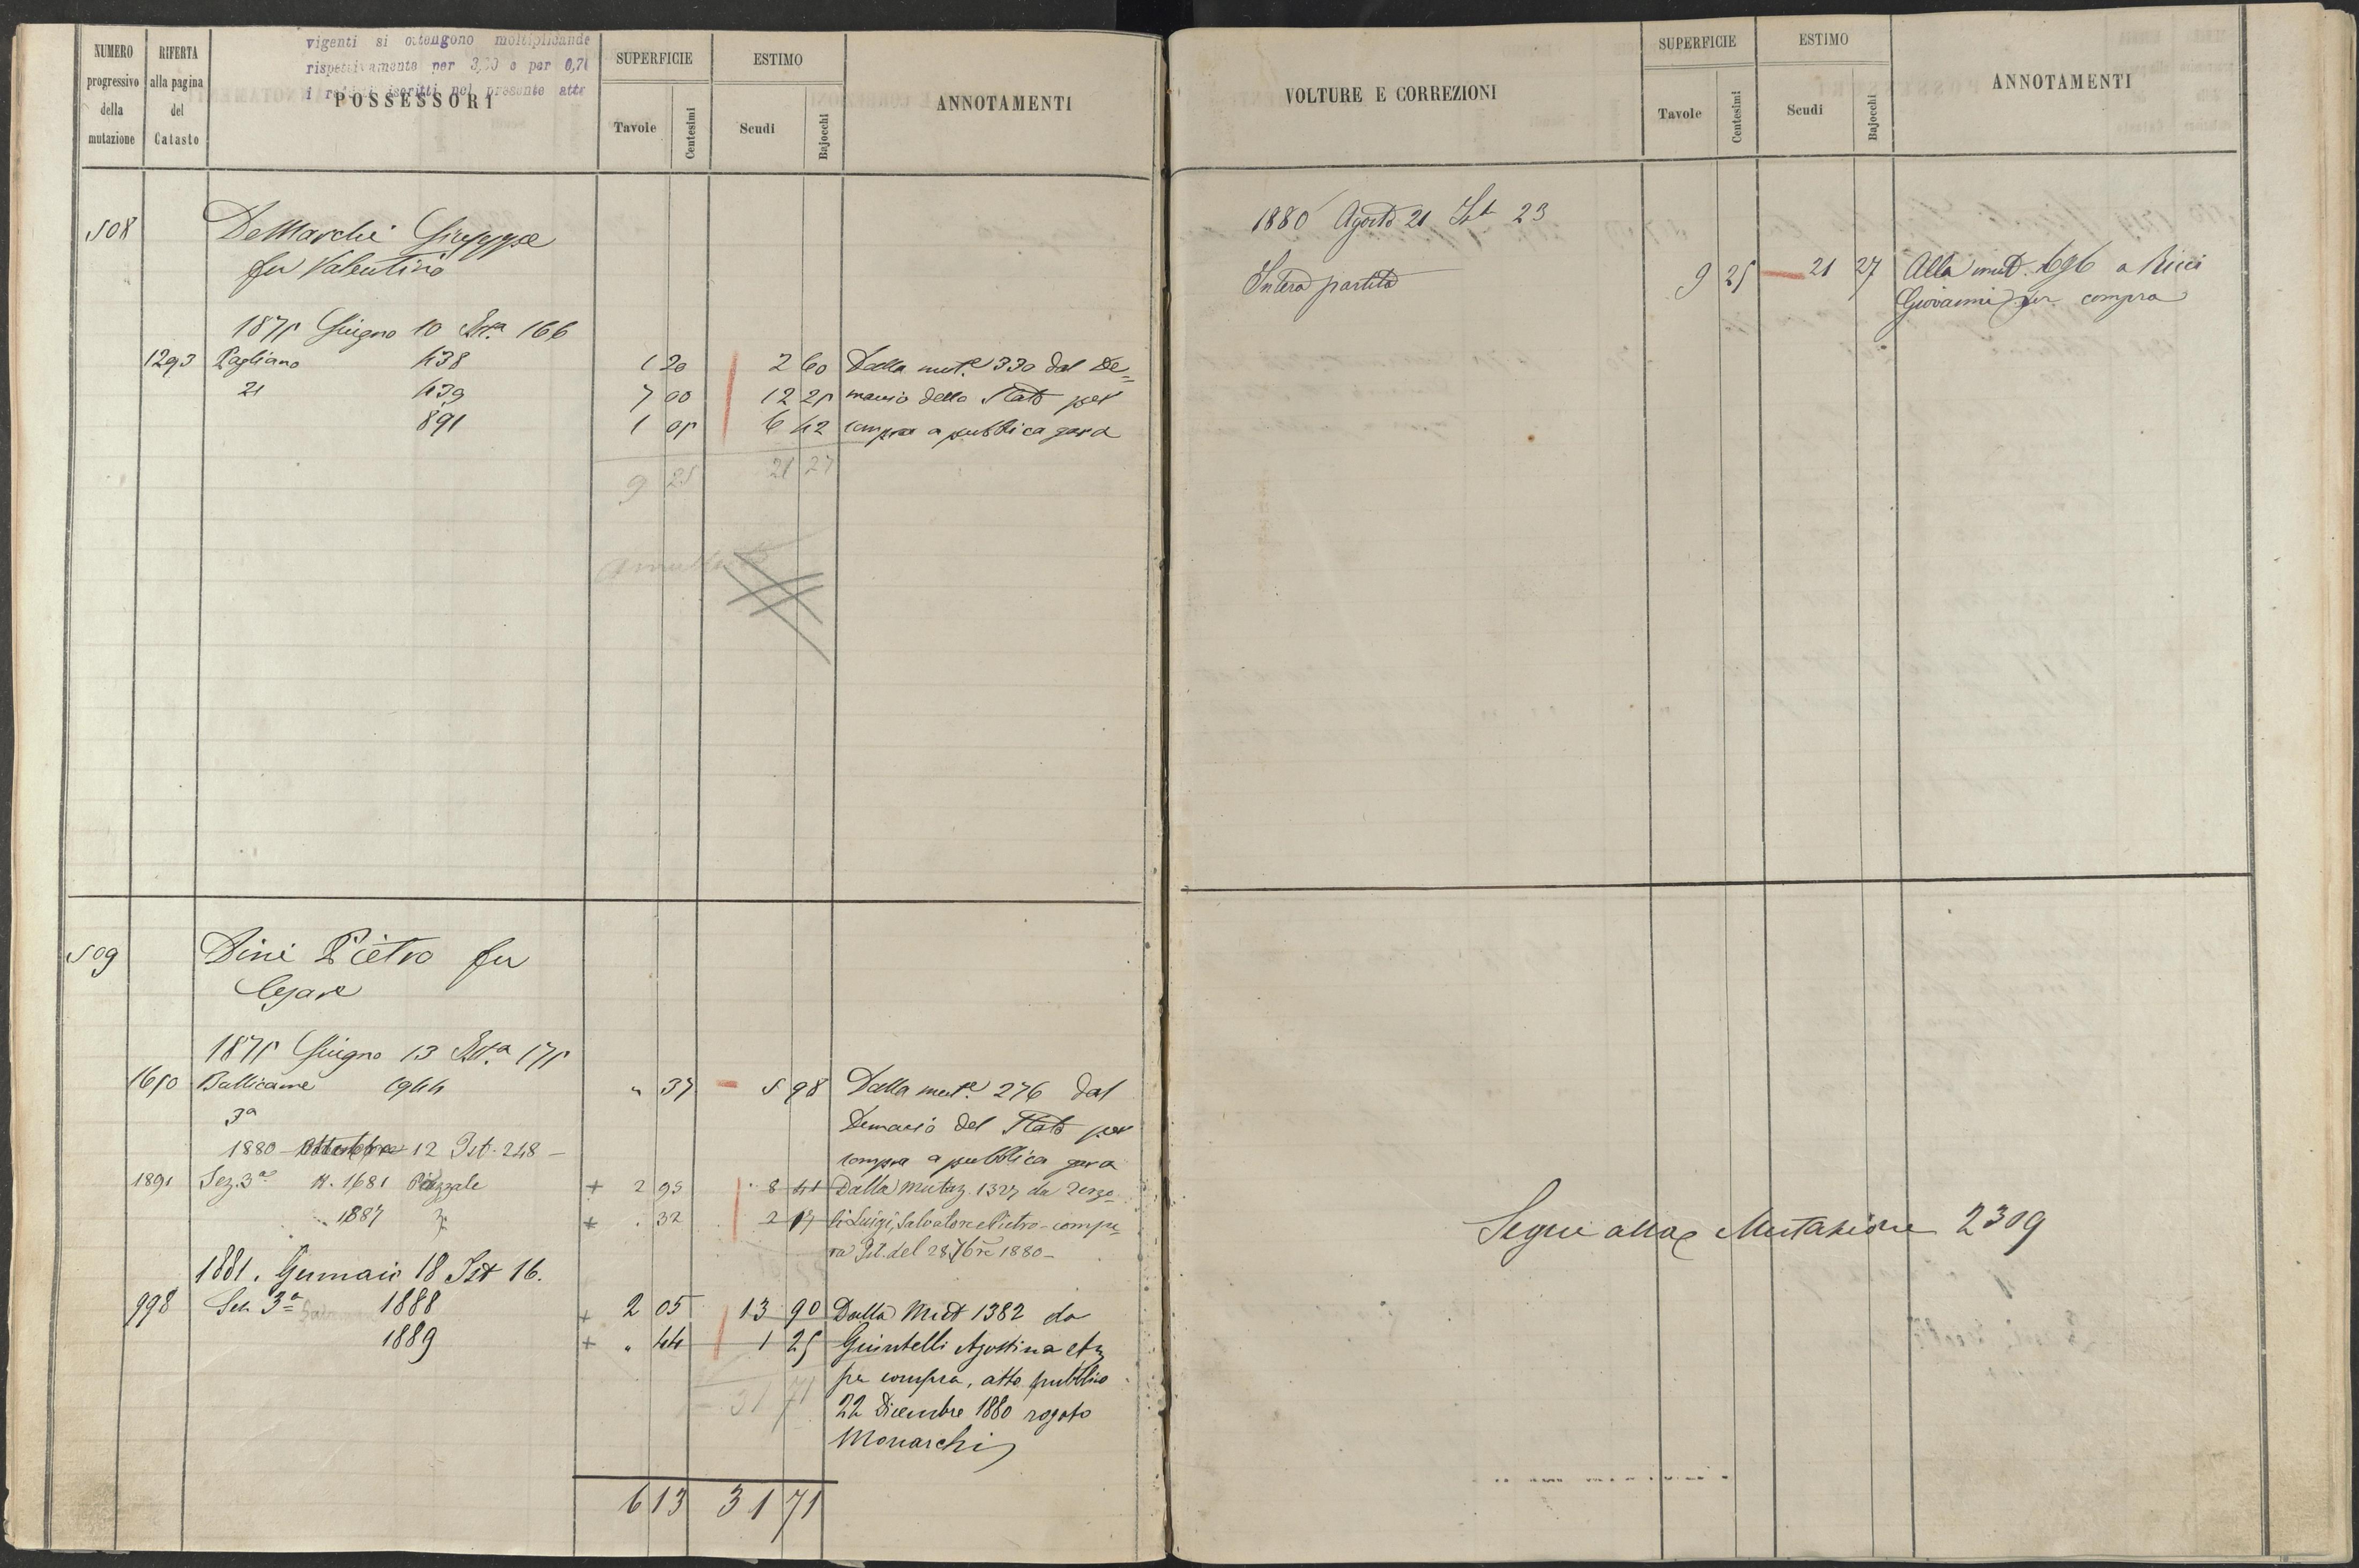 NUMERO progressivo della mutazione
RIFERTA alla pagina del Catasto
vigenti si ottengono moltiplicande
rispettivamente per 3,00 e per 0,71
i redditi iscritti nel presente atto
POSSESSORI
SUPERFICIE
Tavole Centesimi
ESTIMO
Scudi Bajocchi
ANNOTAMENTI
508 De Marchi Giuseppe
fu Valentino
1875 Giugno 10 Ist.a 166
1293 Pagliano 438 1 20 2 60 Dalla mut.e 330 dal De=
21 439 7 00 12 25 manio dello Stato per
891 1 05 6 42 compra a pubblica gara
9 25 21 27
Annullato
509 Dini Pietro fu
Cesare
1875 Giugno 13 Ist.a 175
1650 Bullicame 1944 " 37 5 98 Dalla mut.e 276 dal
3a Demanio del Stato per
1880 - 12 Ist. 248 - compra a pubblica gara
1891 Sez. 3a N. 1681 Piazzale + 2 95 8 41 Dalla mutaz. 1327 da Terzo-
1887 + . 32 2 17 li Luigi, Salvatore e Pietro - comp
ra Ist. del 28 7bre 1880 -
1881. Gennaio 18 Ist 16.
998 Sez 3a 1888 + 2 05 13 90 Dalla Mut 1382 da
1889 + " 44 1 25 Guintelli Agostina
per compra, atto pubblico
31 71 22 Dicembre 1880 rogato
Monarchi
6 13 31 71
VOLTURE E CORREZIONI
SUPERFICIE
Tavole Centesimi
ESTIMO
Scudi Bajocchi
ANNOTAMENTI
1880 Agosto 21 Ist 23
Intera partita 9 25 21 27 Alla mut. 696 a Ricci
Giovanni per compra
Segue alla Mutazione 2309